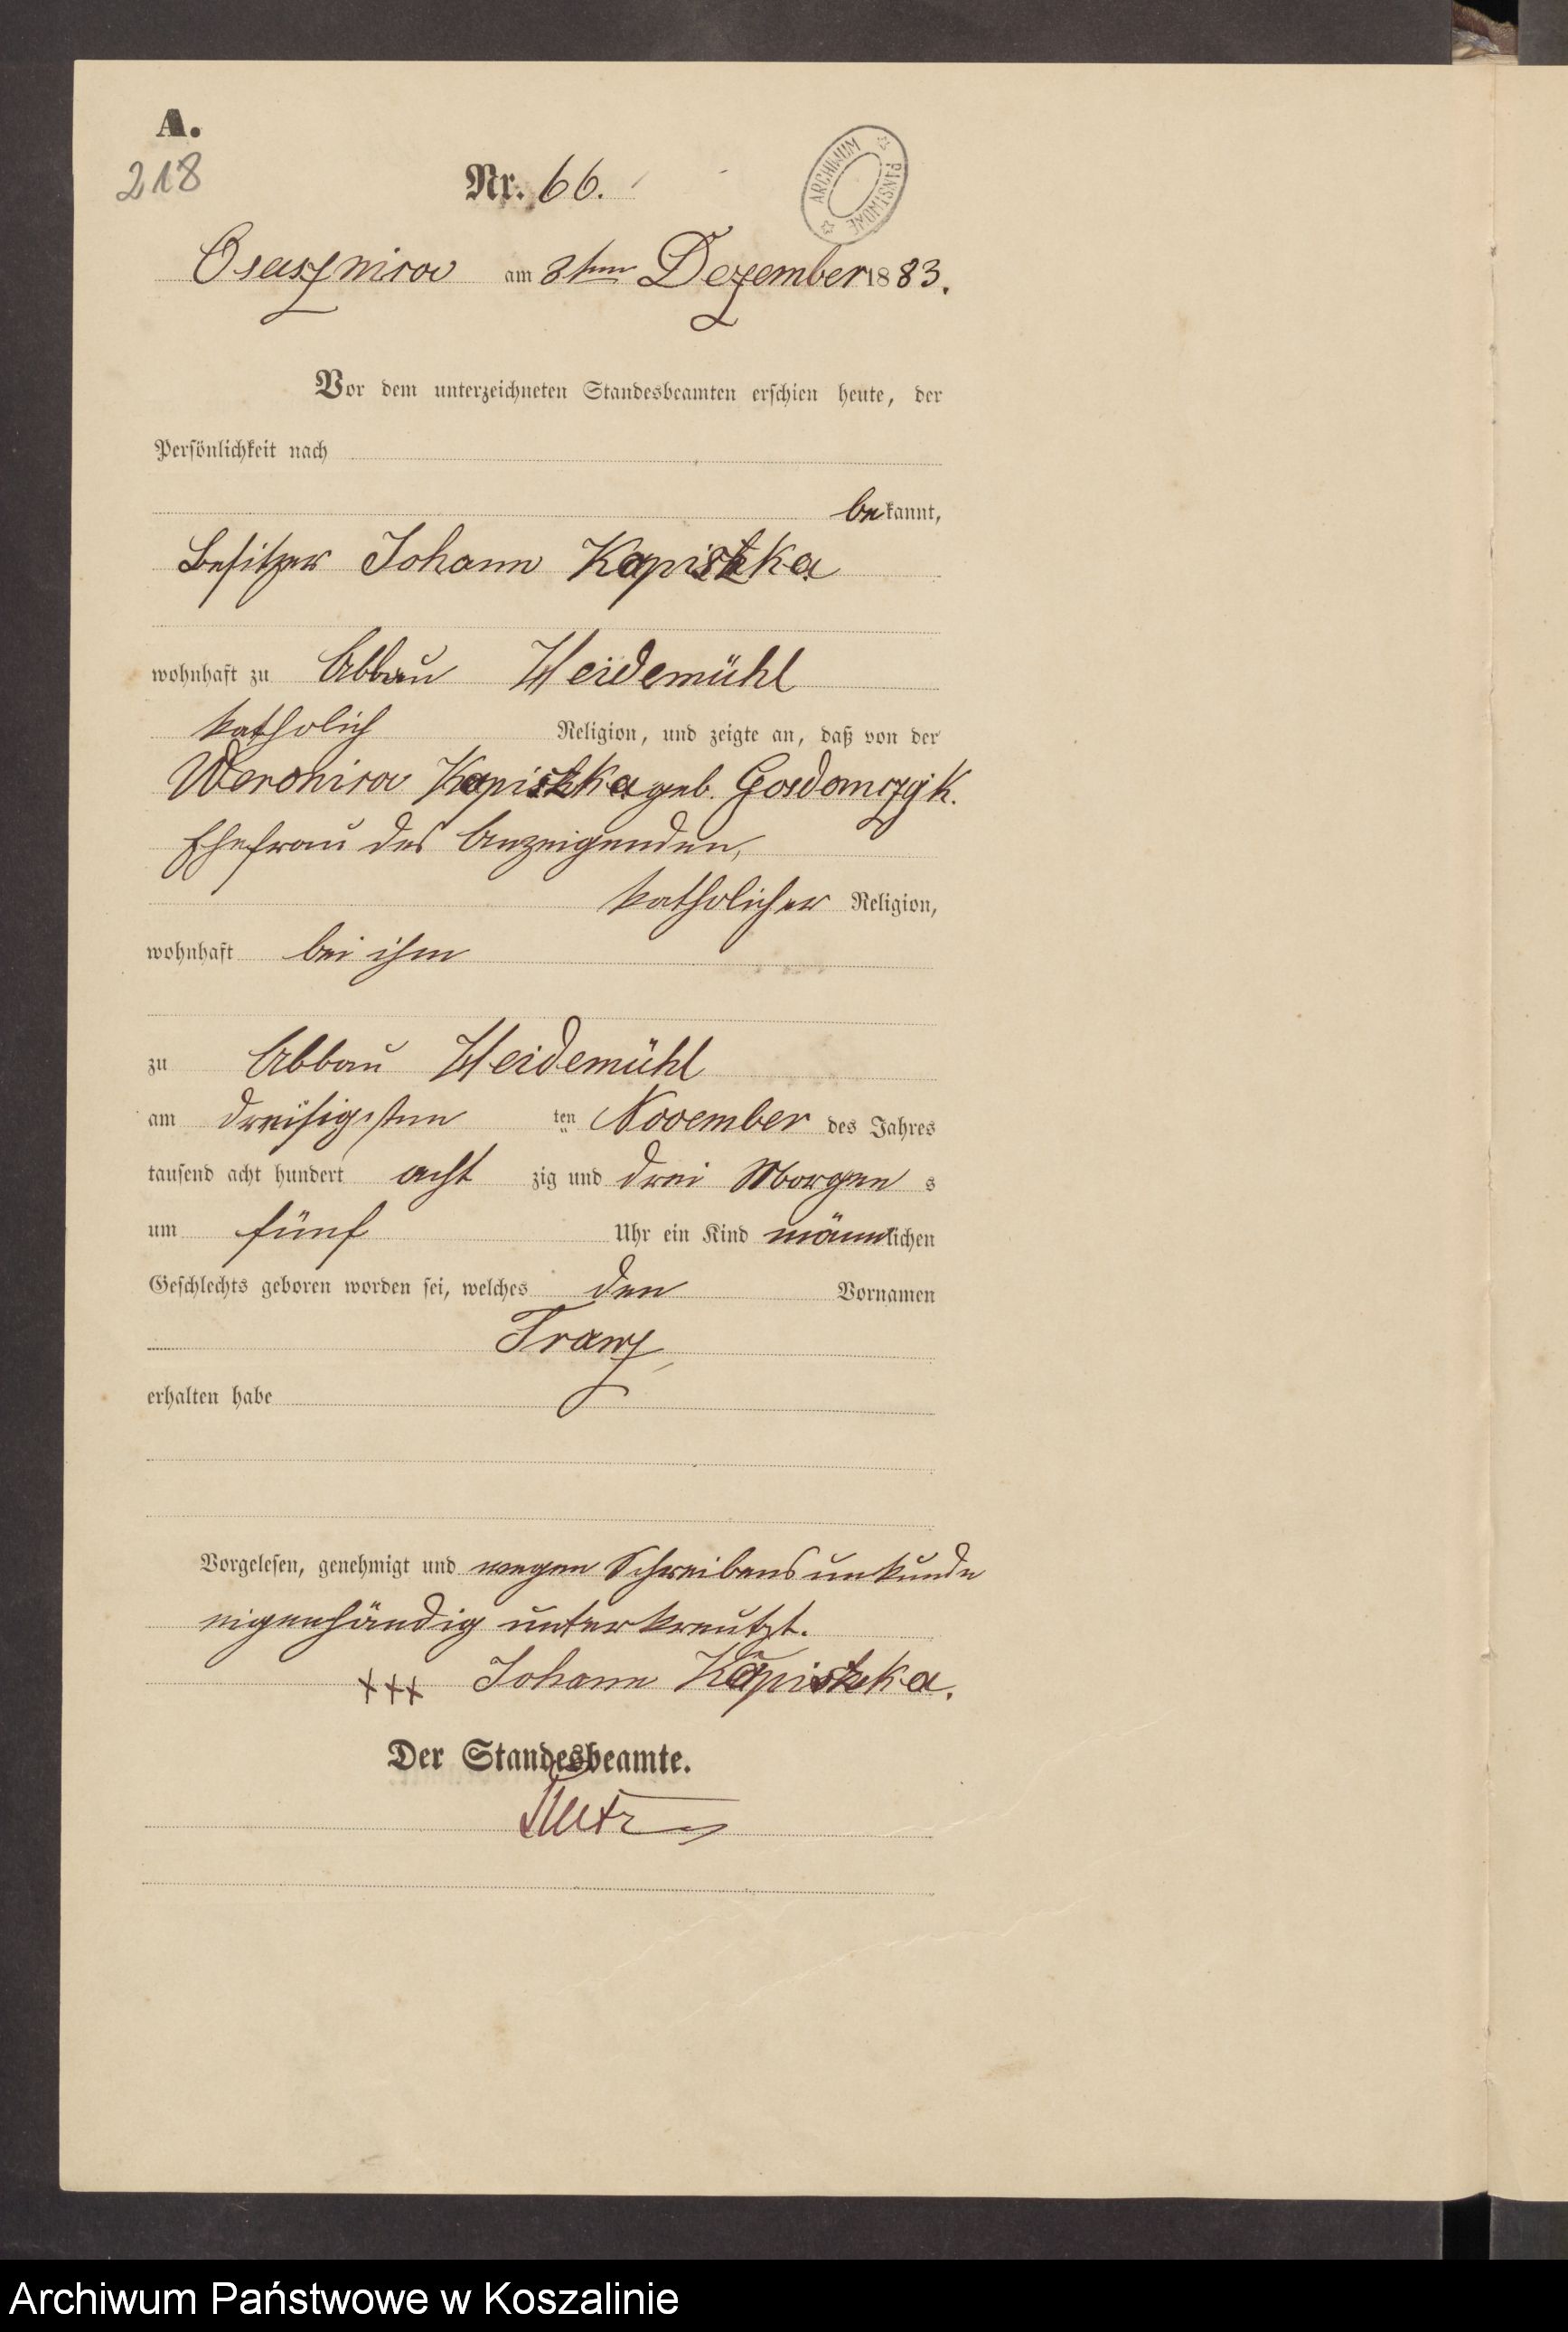 A.
218
Nr. 66.
ARCHIWUM PAŃSTWOWE
am 3ten Dezember 1883.
Vor dem unterzeichneten Standesbeamten erschien heute, der
Persönlichkeit nach
bekannt,
Besitzer Johann
wohnhaft zu Abbau Heidemühl
katholisch Religion, und zeigte an, daß von der
geb.
Ehefrau des Anzeigenden,
katholischer Religion,
wohnhaft bei ihm
zu Abbau Heidemühl
am dreißigsten ten November des Jahres
tausend acht hundert acht zig und drei Morgens
um fünf Uhr ein Kind männlichen
Geschlechts geboren worden sei, welches den Vornamen
Franz
erhalten habe
Vorgelesen, genehmigt und wegen Schreibensunkunde
eigenhändig unterkreutzt.
+++ Johann
Der Standesbeamte.
Archiwum Państwowe w Koszalinie